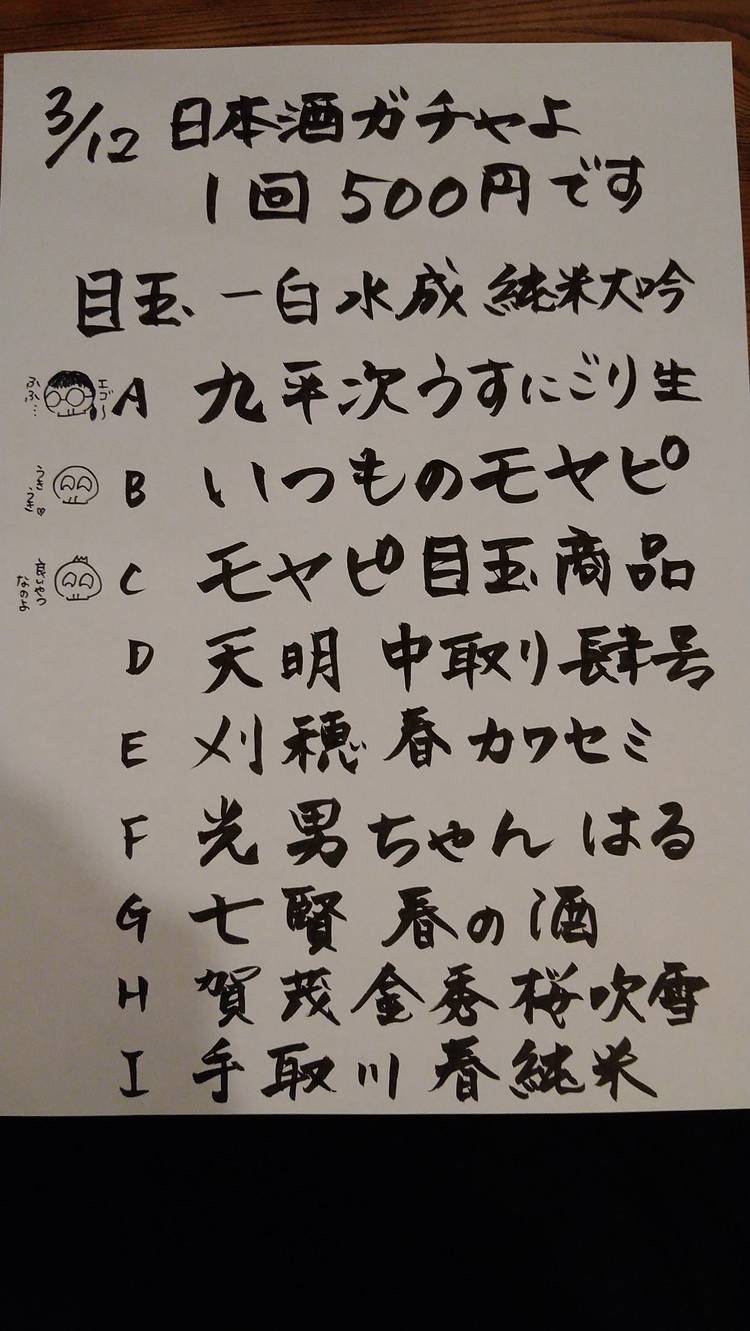 3/12 日本酒ガチャよ
1回 500円です
目玉 一白水成 純米大吟
ふふ… エゴ〜 A 九平次うすにごり生
うき うき B いつものモヤピ
良いやつ なのよ C モヤピ目玉商品
D 天明 中取り肆号
E 刈穂 春カワセミ
F 光男ちゃん はる
G 七賢 春の酒
H 賀茂金秀桜吹雪
I 手取川 春純米